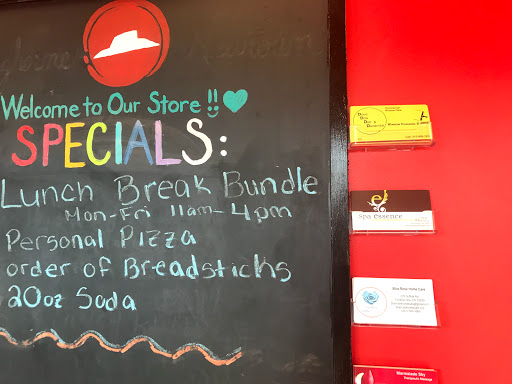 Welcome to Our Store !!
SPECIALS:
Lunch Break Bundle
Mon-Fri 11am-4pm
Personal Pizza
order of Breadsticks
20oz Soda
Spa essence
Blue Rose Home Care
Marmalade Sky
Therapeutic Massage